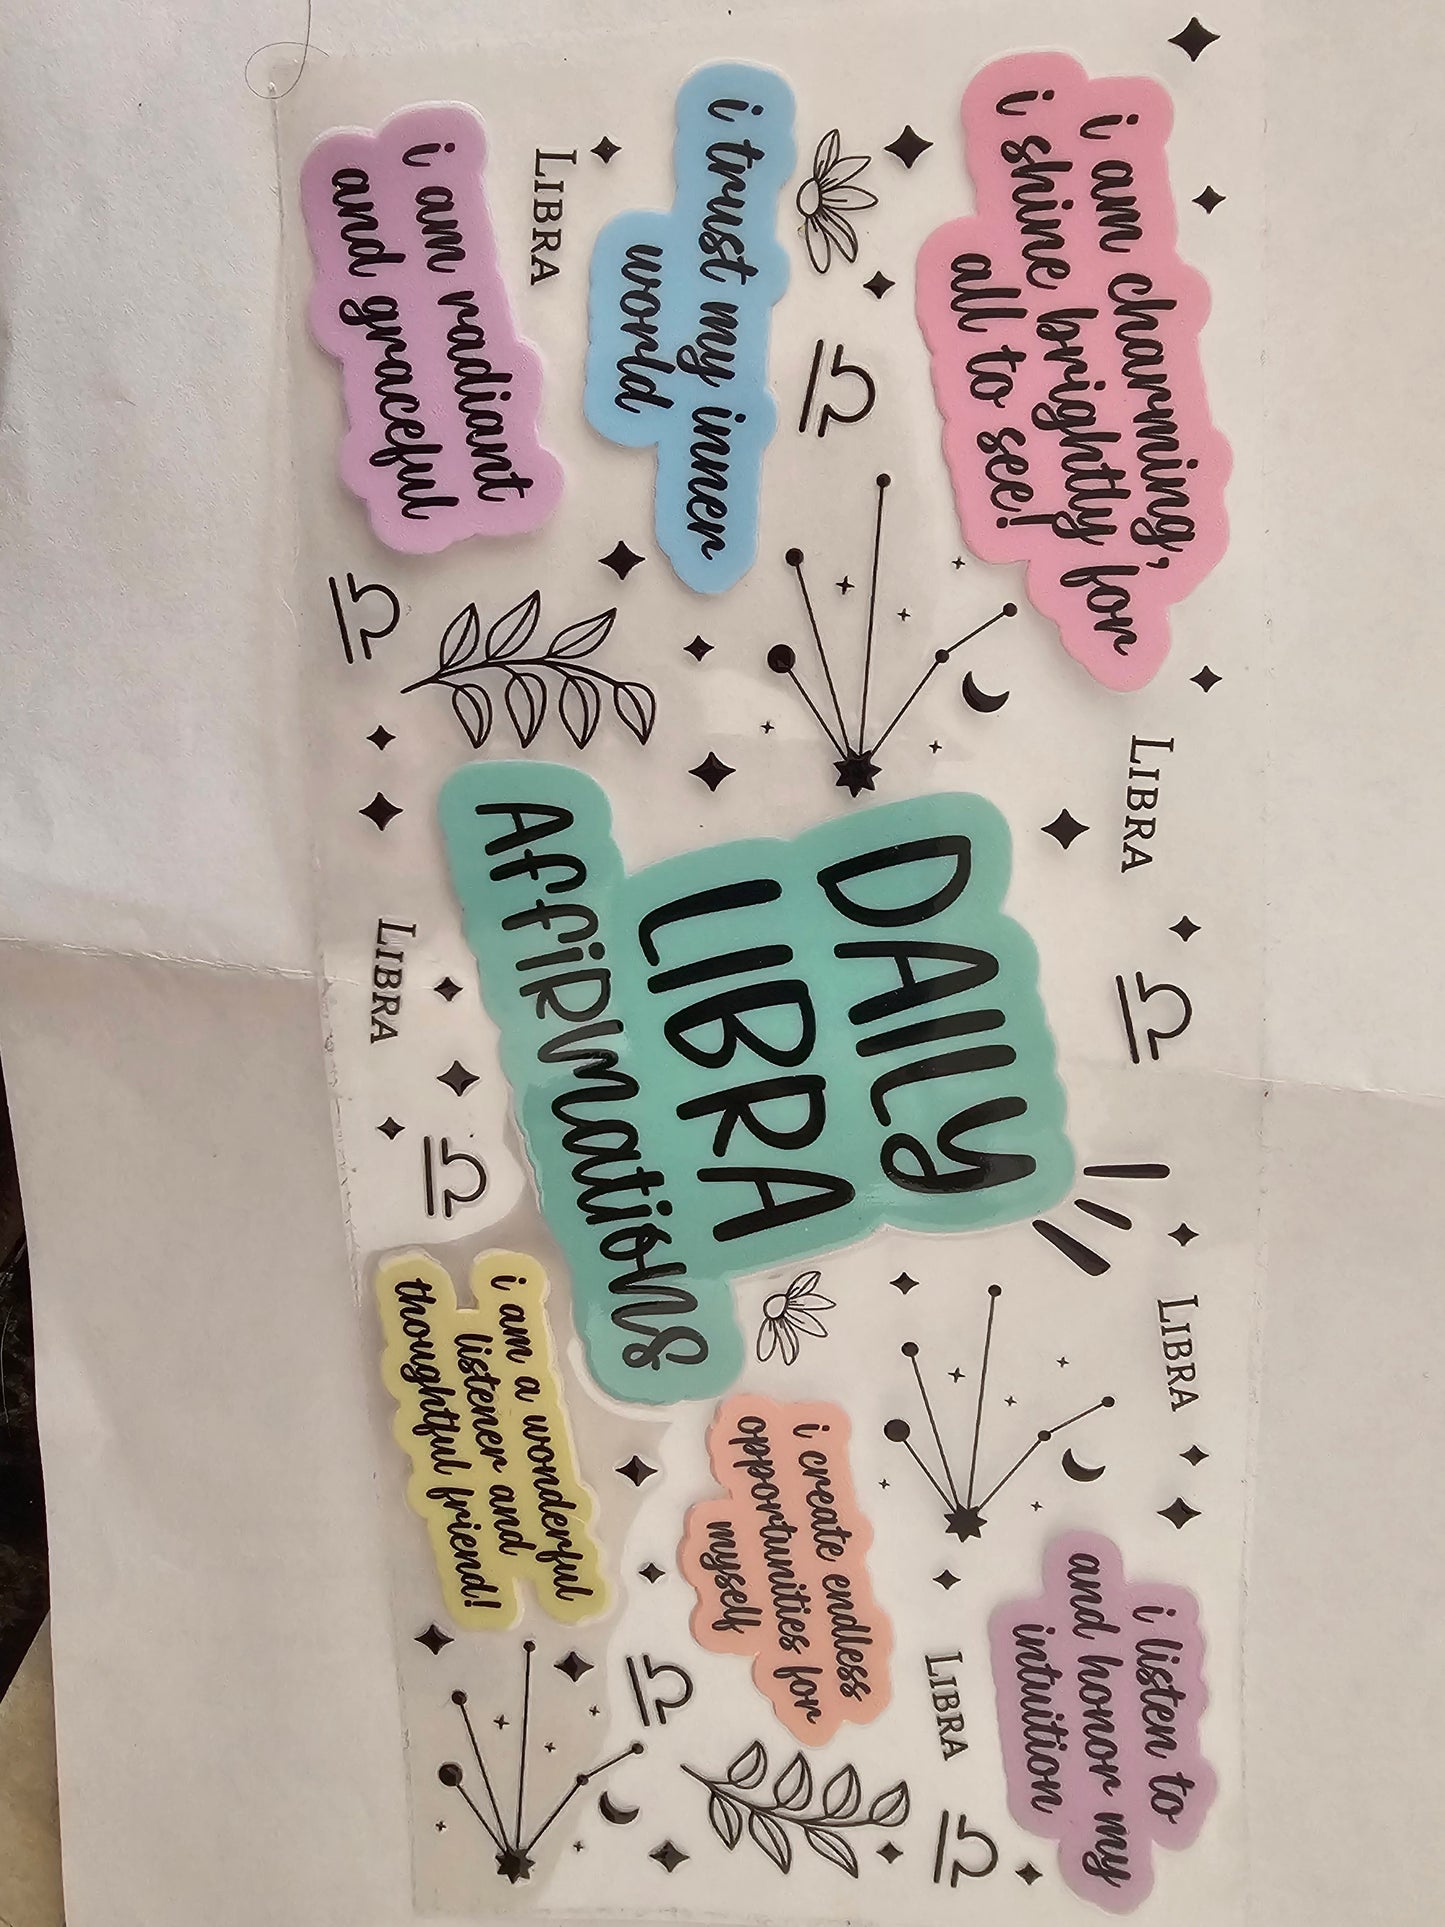 i am charming,
i shine brightly for
all to see!
LIBRA
LIBRA
i listen to
and honor my
intuition
i trust my inner
world
DAILY
LIBRA
AffiRMatioNS
i create endless
opportunities for
myself
LIBRA
LIBRA
i am radiant
and graceful
LIBRA
i am a wonderful
listener and
thoughtful friend!